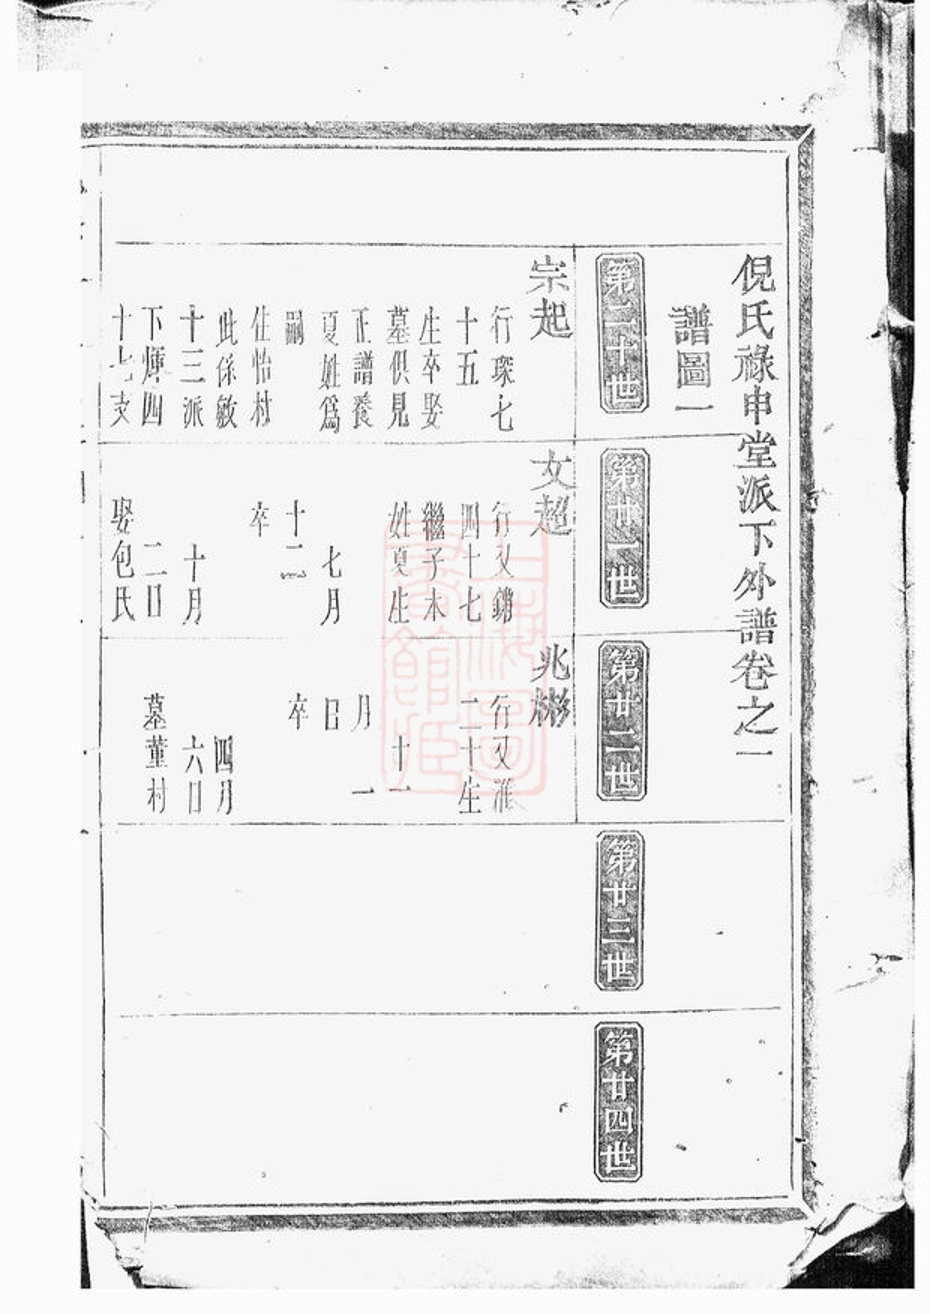 倪氏祿申堂派下外譜卷之一
譜圖一
第二十世
宗起
行琛七
十五
生卒娶
墓俱見
正譜養
夏姓爲
嗣
住怡村
此係敏
十三派
下煇四
十七支
第廿一世
文超
行又鏘
四十七
繼子本
姓夏生
七月
十二
卒
十月
二日
娶包氏
第廿二世
兆彬
行又
二十生
十一
月 一
日
卒
四月
六日
墓董村
第廿三世
第廿四世